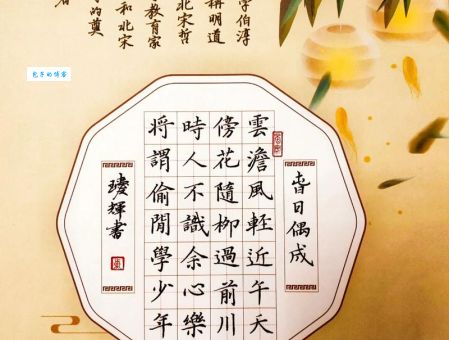 字伯淳
稱明道
北宋哲
教育家
和北宋
的奠
者
包子的博客
春日偶成
雲澹風軽近午天
傍花隨柳過前川
時人不識余心樂
将謂偷閒學少年
輝書